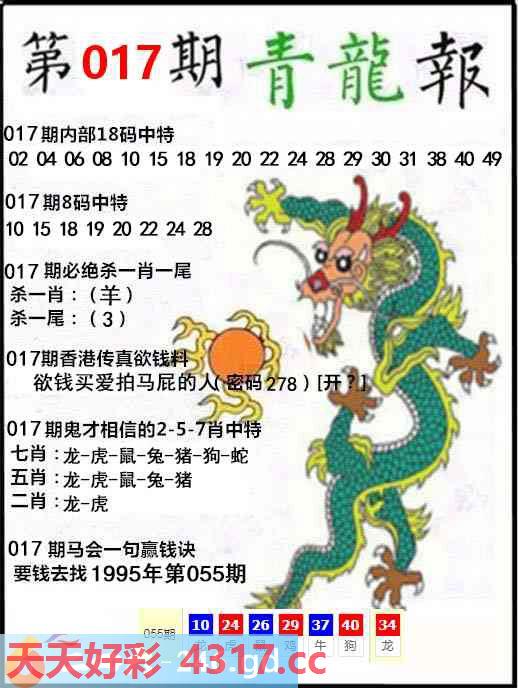 第017期青龍報
017期内部18码中特
02 04 06 08 10 15 18 19 20 22 24 28 29 30 31 38 40 49
017期8码中特
10 15 18 19 20 22 24 28
017 期必绝杀一肖一尾
杀一肖：（羊）
杀一尾：（3）
017期香港传真欲钱料
欲钱买爱拍马屁的人（密码278）[开？]
017期鬼才相信的2-5-7肖中特
七肖：龙-虎-鼠-兔-猪-狗-蛇
五肖：龙-虎-鼠-兔-猪
二肖：龙-虎
017期马会一句赢钱诀
要钱去找1995年第055期
055期 10 24 26 29 37 40 34
龙 虎 鼠 鸡 牛 狗 龙
天天好彩 4317.cc